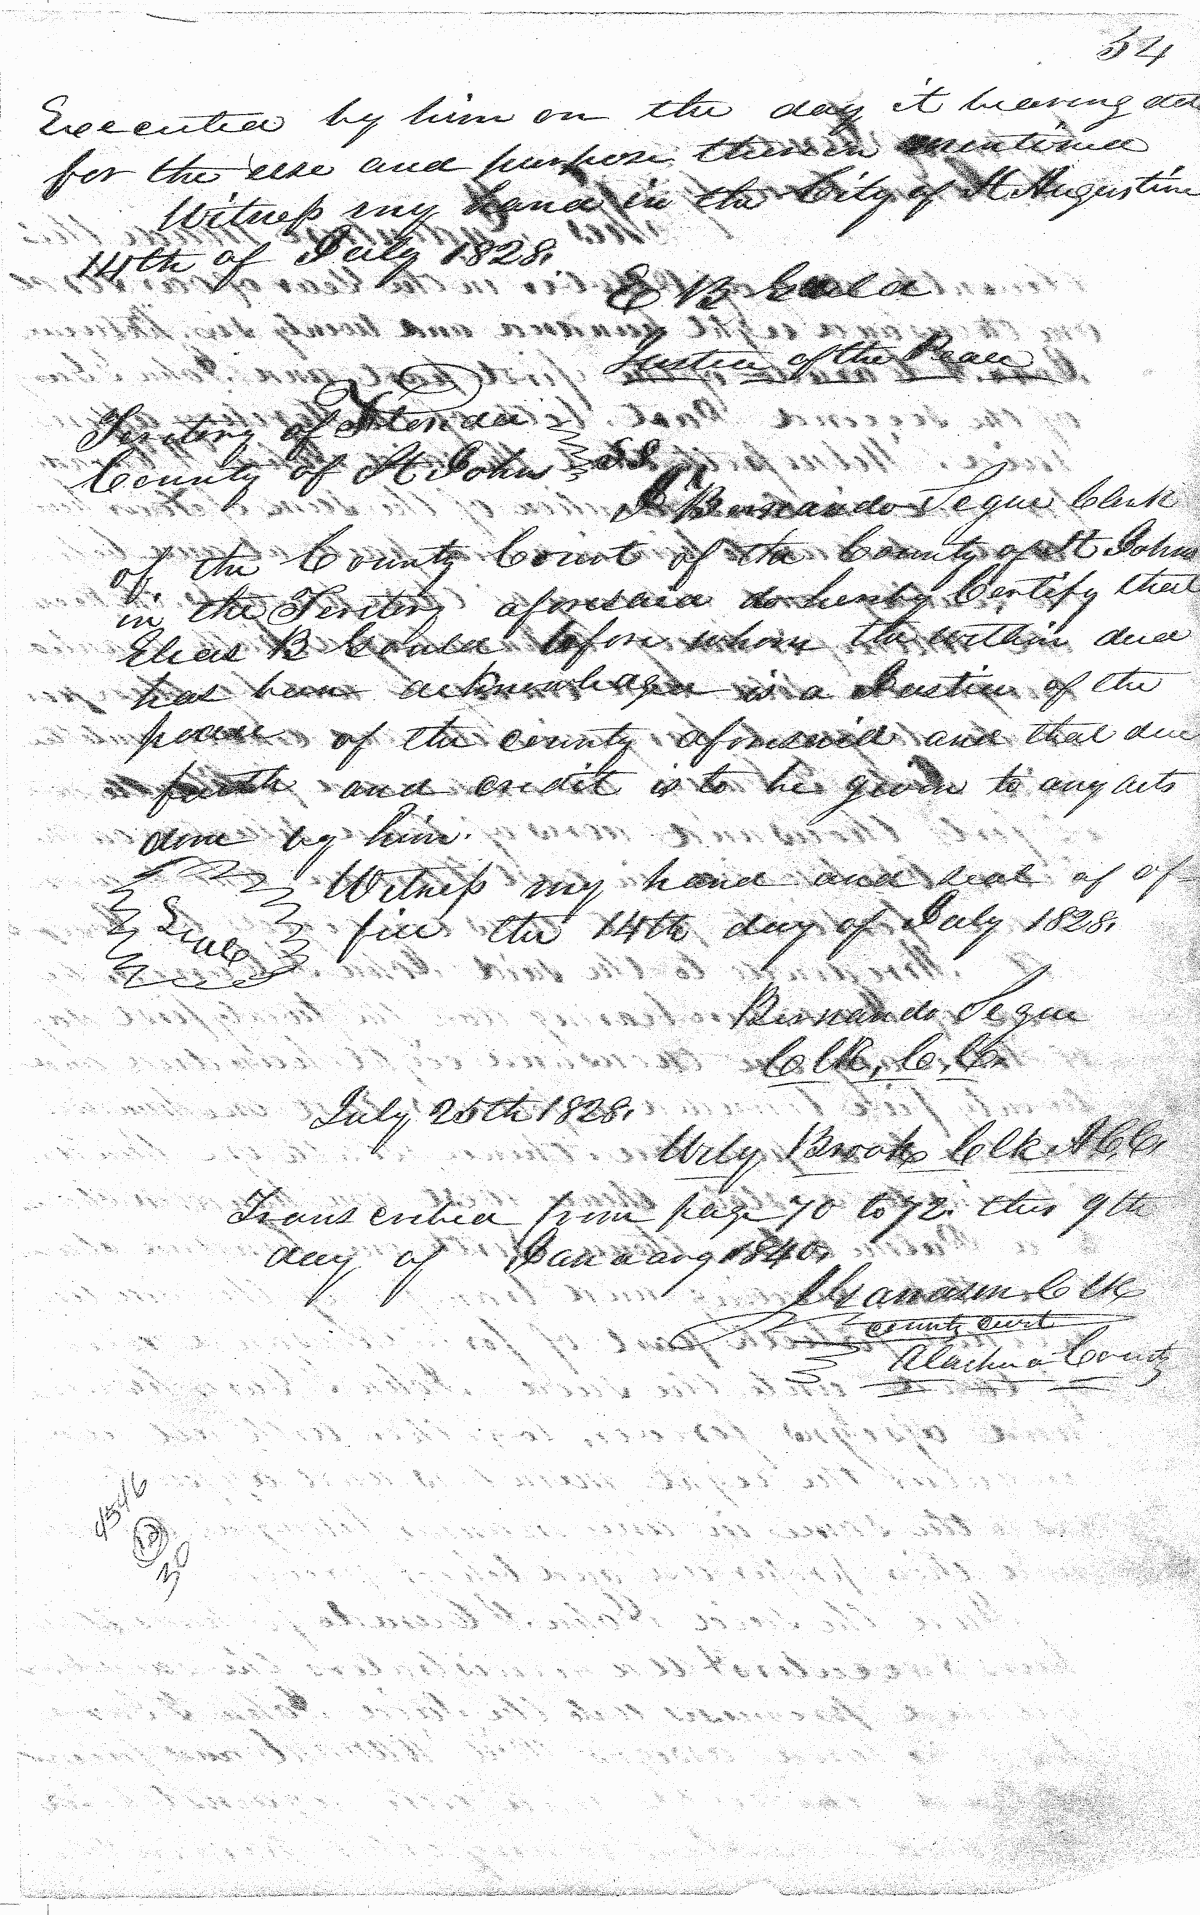 54
Executed by him on the day it bearing date
for the use and purpose therein mentioned
Witness my hand in the City of St Augustine
14th of July 1828.
E B Gould
Justice of the Peace
Teritory of Florida
County of St Johns SS
I Bernando Segue Clerk
of the County Court of the County of St Johns
in the Teritory aforesaid do hereby Certify that
Elias B Gould before whom the within deed
has been acknowledged is a Justice of the
peace of the county aforesaid and that due
faith and credit is to be given to any acts
done by him.
Witness my hand and seal of of-
Seal
fice the 14th day of July 1828.
Bernando Segue
Clk, C. C.
July 25th 1828.
Wily Brooks Clk A C. C.
Transcribed from page 70 to 72. this 9th
day of Januarry 1840.
Clk
county curt
Alachua County
4546
12
30